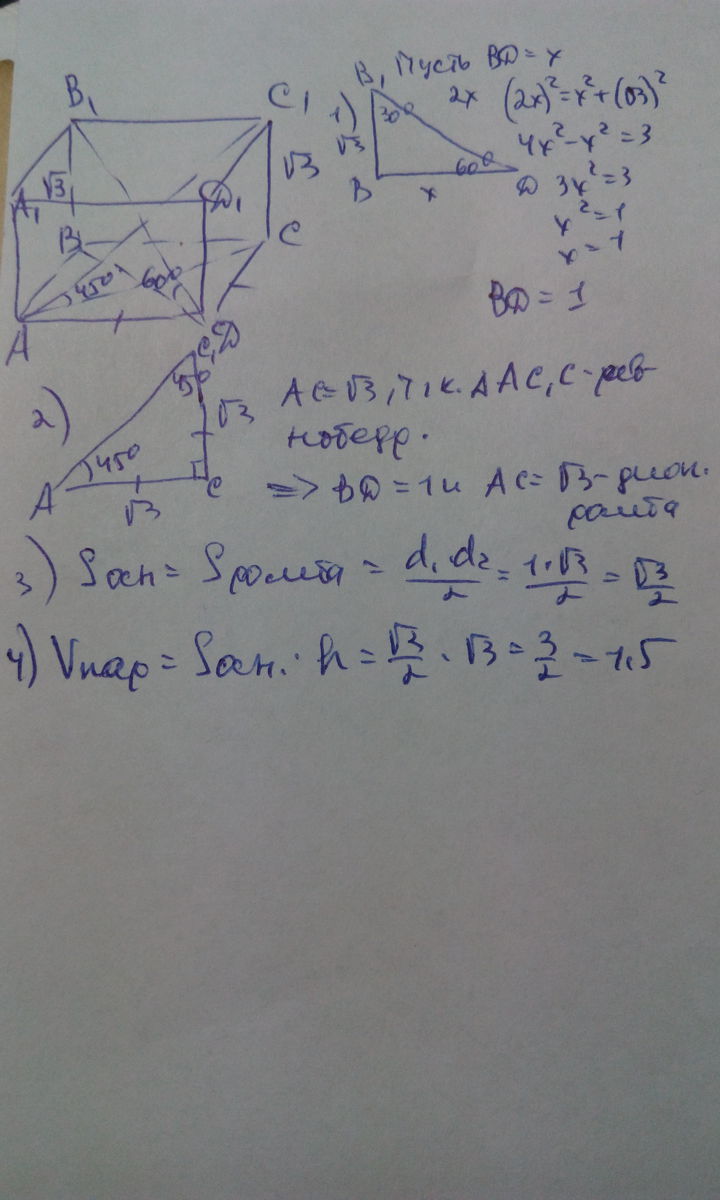 B₁ C₁ √3 A₁ √3 D₁ B C 45° 60° A D
1) Пусть BD = x
B₁ 30° √3 B x 60° D 2x
(2x)² = x² + (√3)²
4x² - x² = 3
3x² = 3
x² = 1
x = 1
BD = 1
2) C₁ 45° √3 45° A √3 C
AC = √3, т.к. ΔAC₁C - рав
нобедр.
=> BD = 1 и AC = √3 - диаг.
ромба
3) Sосн = Sромба = d₁ d₂ / 2 = 1·√3 / 2 = √3 / 2
4) Vпар = Sосн. · h = √3 / 2 · √3 = 3 / 2 = 1.5